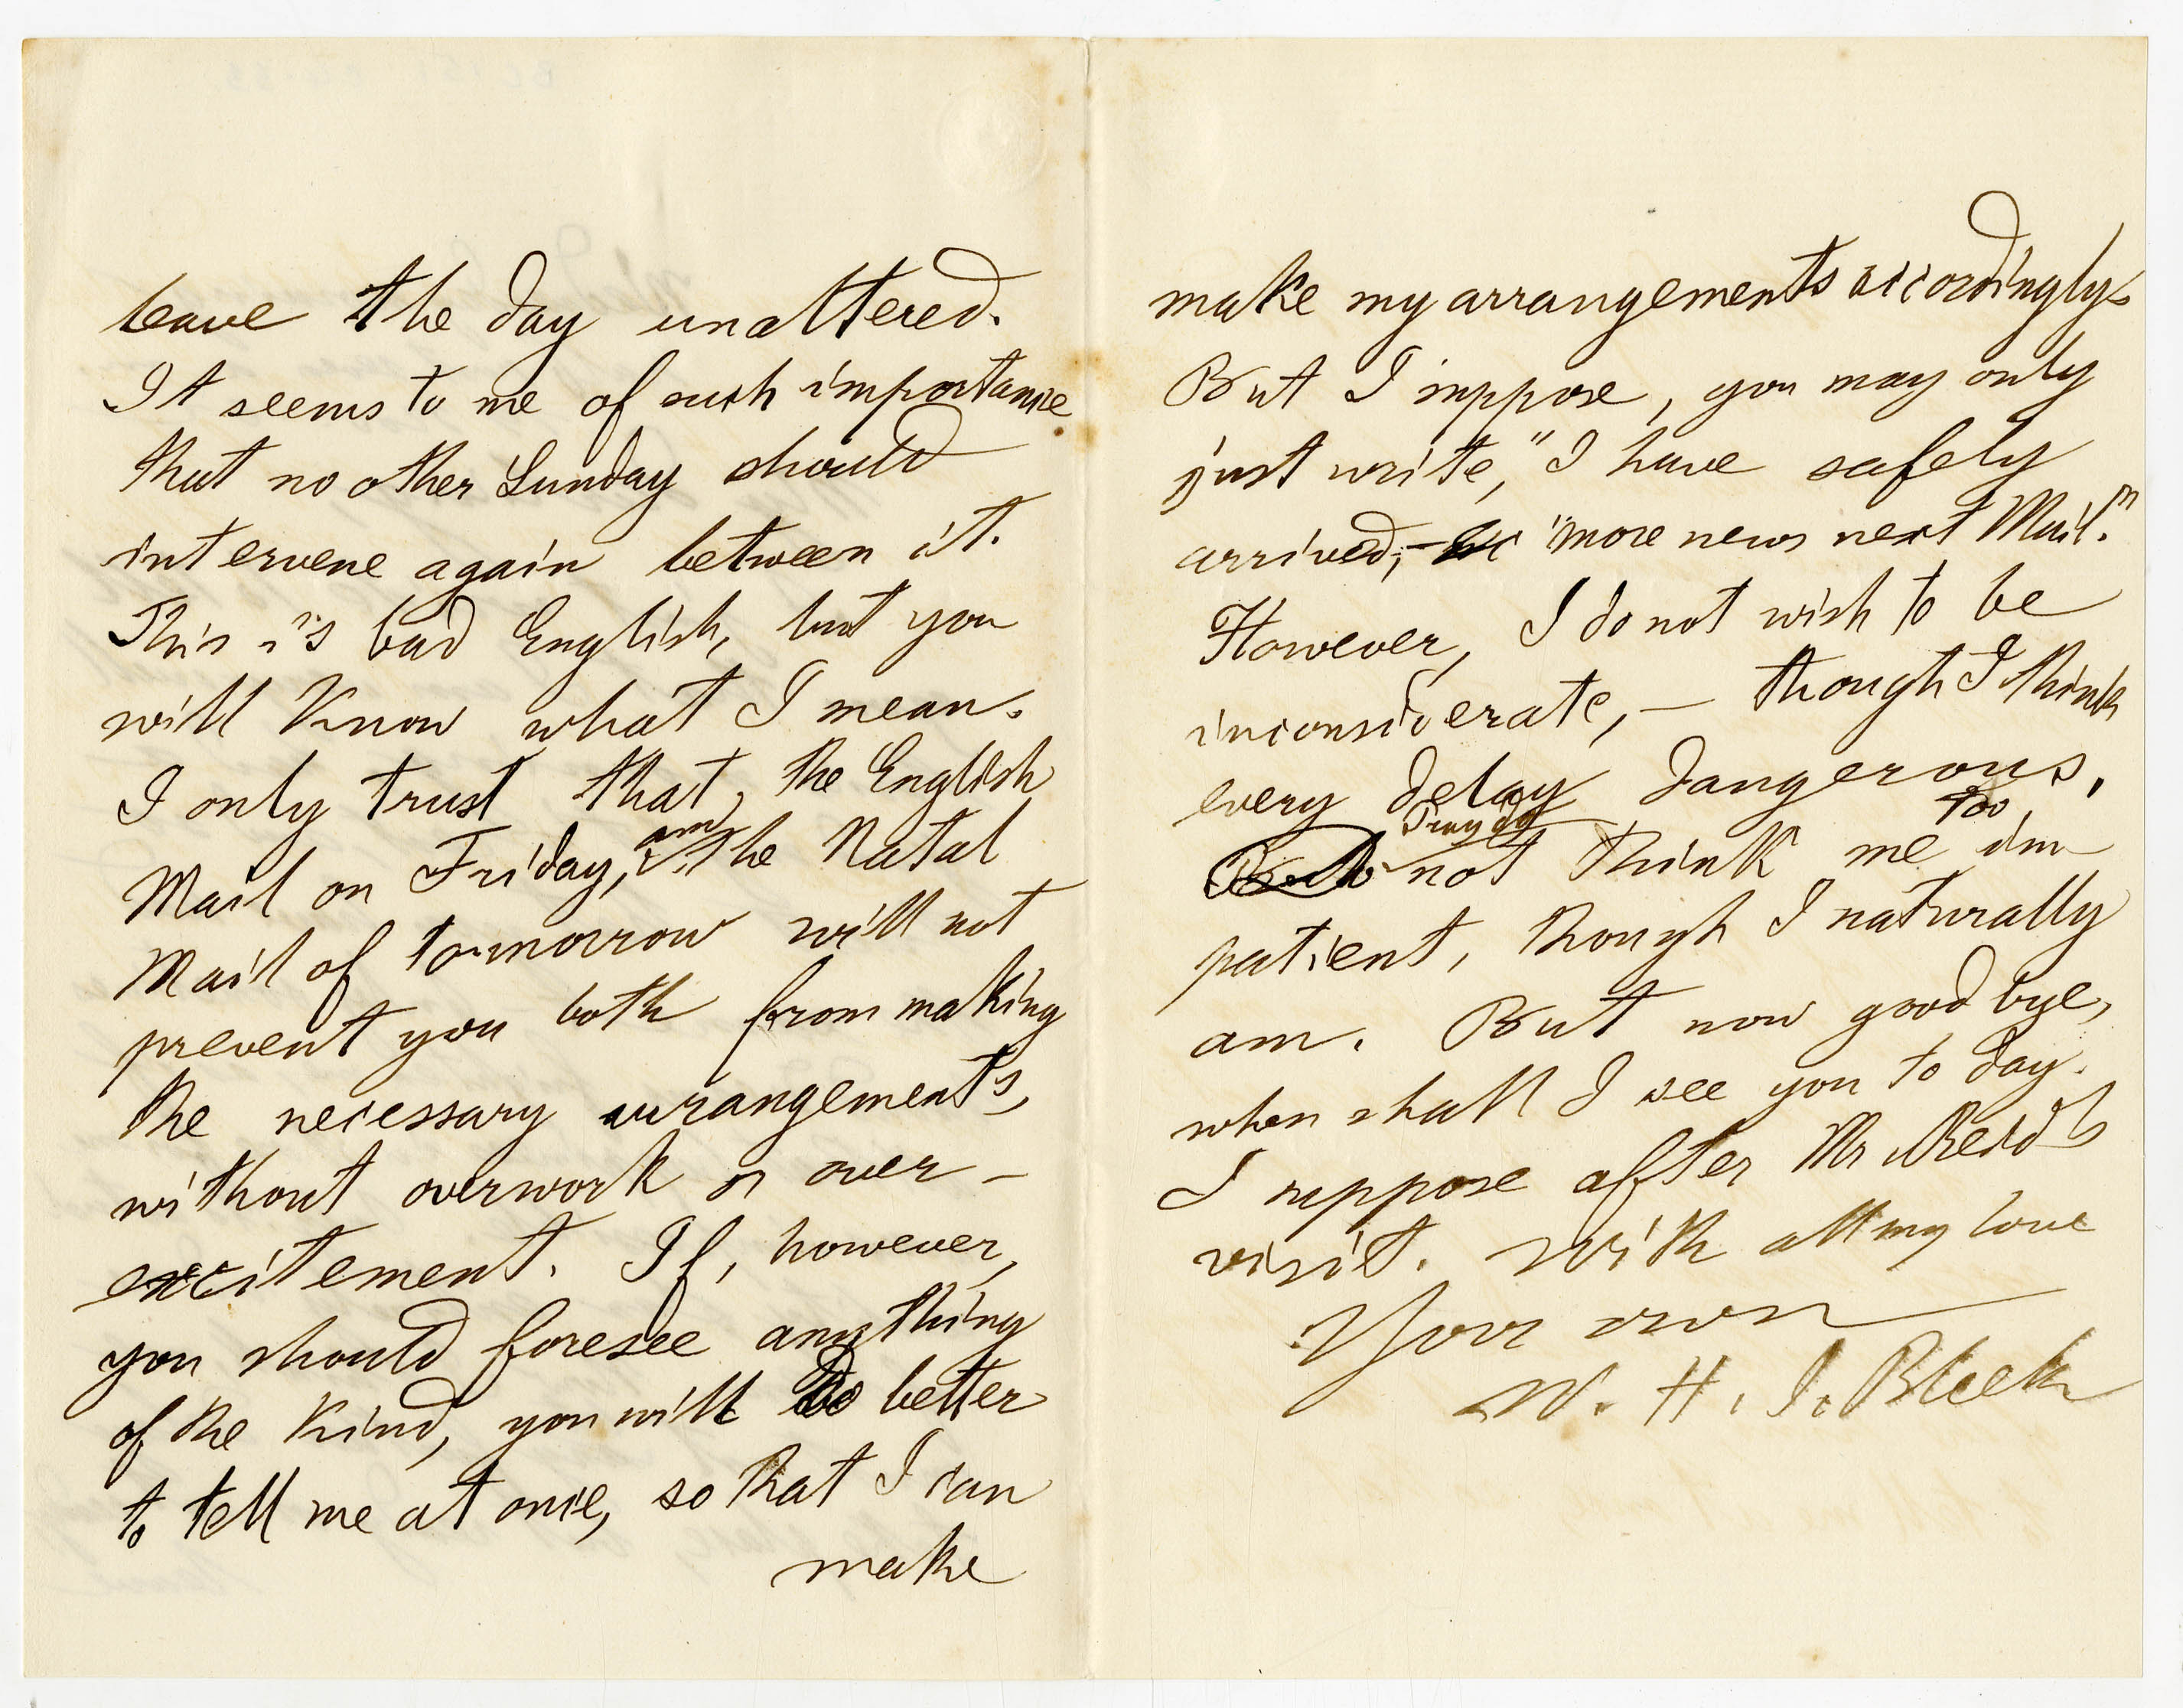 leave the day unaltered.
It seems to me of such importance
that no other Sunday should
intervene again between it.
This is bad English, but you
will know what I mean.
I only trust that, the English
Mail on Friday, and the Natal
Mail of tomorrow will not
prevent you both from making
the necessary arrangements,
without overwork or over-
excitement. If, however,
you should foresee anything
of the kind, you will do better
to tell me at once, so that I can
make
make my arrangements accordingly.
But I suppose, you may only
just write, "I have safely
arrived, - "more news next Mail."
However, I do not wish to be
inconsiderate, - though I think
every delay dangerous.
Pray do not think me too im
patient, though I naturally
am. But now good bye,
when shall I see you to day.
I suppose after Mr Reid's
visit. With all my love
Your own
W. H. I. Bleek